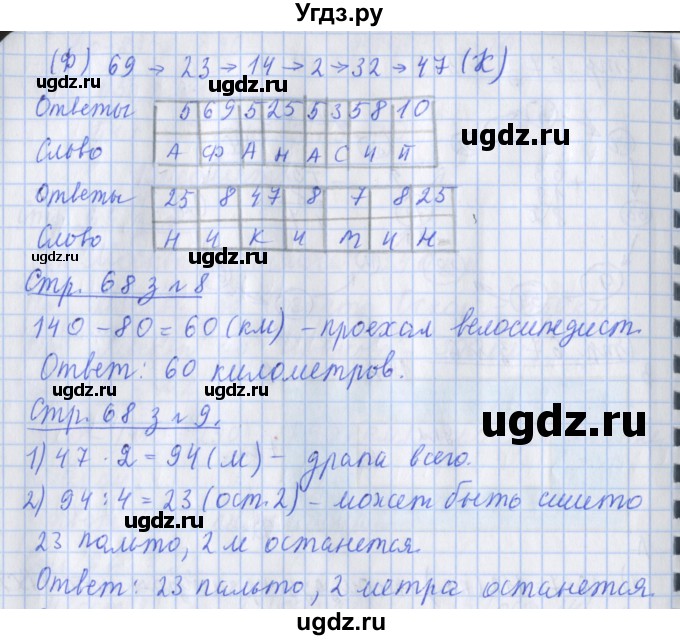 Угдз.ру
(Ф) 69 → 23 → 14 → 2 → 32 → 47 (К)
ugdz.ru
Ответы 5 69 5 25 5 35 8 10
ugdz.ru
Слово А Ф А Н А С И П
Ответы 25 8 47 8 7 8 25
ugdz.ru
Слово Н И К И Т И Н
ugdz.ru
Стр. 68 з №8
140 - 80 = 60 (км) - проехал велосипедист.
Ответ: 60 километров.
ugdz.ru
ugdz.ru
Стр. 68 з №9.
1) 47 · 2 = 94 (м) - драпа всего.
ugdz.ru
2) 94 : 4 = 23 (ост. 2) - может быть сшито
ugdz.ru
23 пальто, 2 м останется.
ugdz.ru
Ответ: 23 пальто, 2 метра останется.
ugdz.ru
ugdz.ru